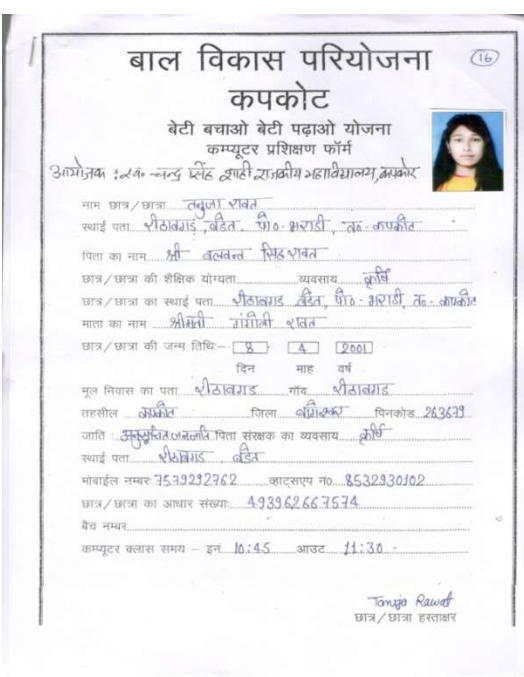 बाल विकास परियोजना
16
कपकोट
बेटी बचाओ बेटी पढ़ाओ योजना
कम्प्यूटर प्रशिक्षण फॉर्म
आयोजक : स्व० चन्द्र सिंह शाही राजकीय महाविद्यालय, कपकोट
नाम छात्र/छात्रा तनुजा रावत
स्थाई पता रीठाबगड़, बडेत, पो०- भराडी, त०- कपकोट
पिता का नाम श्री बलवन्त सिंह रावत
छात्र/छात्रा की शैक्षिक योग्यता व्यवसाय कृषि
छात्र/छात्रा का स्थाई पता रीठाबगड बडेत, पो०- भराडी, त०- कपकोट
माता का नाम श्रीमती गंगोली रावत
छात्र/छात्रा की जन्म तिथि:- 8 4 2001
दिन माह वर्ष
मूल निवास का पता रीठाबगड गाँव रीठाबगड
तहसील कपकोट जिला बागेश्वर पिनकोड 263679
जाति : अनुसूचित जनजाति पिता संरक्षक का व्यवसाय कृषि
स्थाई पता रीठाबगड बडेत
मोबाईल नम्बर 7579292762 व्हाट्सएप न० 8532930102
छात्र/छात्रा का आधार संख्या: 493962667574
बैच नम्बर
कम्प्यूटर क्लास समय – इन 10:45 आउट 11:30
Tanuja Rawat
छात्र/छात्रा हस्ताक्षर